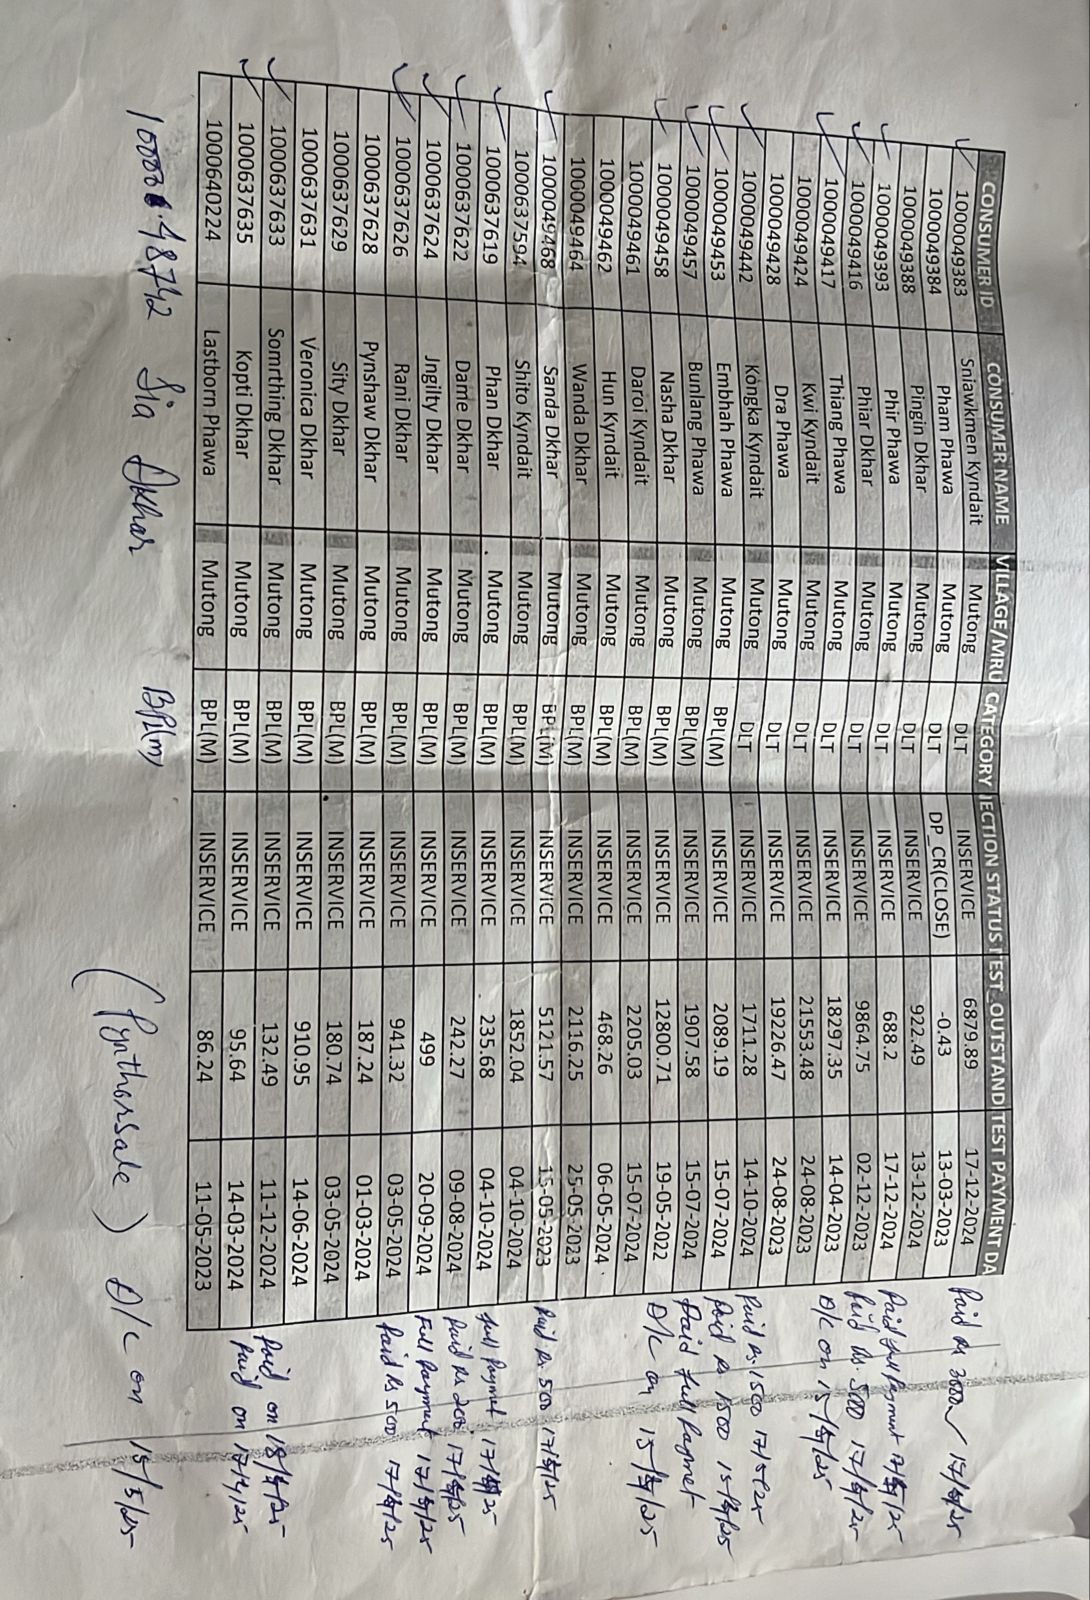 CONSUMER ID CONSUMER NAME VILLAGE/MRU CATEGORY IECTION STATUS TEST_OUTSTANDI TEST PAYMENT DA
1000049383 Sniawkmen Kyndait Mutong DLT INSERVICE 6879.89 17-12-2024 Paid Rs 3000
1000049384 Pham Phawa Mutong DLT DP_CR(CLOSE) -0.43 13-03-2023
1000049388 Pingin Dkhar Mutong DLT INSERVICE 922.49 13-12-2024
1000049393 Phir Phawa Mutong DLT INSERVICE 688.2 17-12-2024 Paid full Payment
1000049416 Phiar Dkhar Mutong DLT INSERVICE 9864.75 02-12-2023 Paid Rs. 500
1000049417 Thiang Phawa Mutong DLT INSERVICE 18297.35 14-04-2023 D/C on
1000049424 Kwi Kyndait Mutong DLT INSERVICE 21553.48 24-08-2023
1000049428 Dra Phawa Mutong DLT INSERVICE 19226.47 24-08-2023
1000049442 Kongka Kyndait Mutong DLT INSERVICE 1711.28 14-10-2024 Paid Rs. 1500
1000049453 Embhah Phawa Mutong BPL(M) INSERVICE 2089.19 15-07-2024 Paid Rs 1500
1000049457 Bunlang Phawa Mutong BPL(M) INSERVICE 1907.58 15-07-2024 Paid full Payment
1000049458 Nasha Dkhar Mutong BPL(M) INSERVICE 12800.71 19-05-2022 D/C on
1000049461 Daroi Kyndait Mutong BPL(M) INSERVICE 2205.03 15-07-2024
1000049462 Hun Kyndait Mutong BPL(M) INSERVICE 468.26 06-05-2024
1000049464 Wanda Dkhar Mutong BPL(M) INSERVICE 2116.25 25-05-2023
1000049468 Sanda Dkhar Mutong BPL(M) INSERVICE 5121.57 15-05-2023 Paid Rs. 500
1000637594 Shito Kyndait Mutong BPL(M) INSERVICE 1852.04 04-10-2024
1000637619 Phan Dkhar Mutong BPL(M) INSERVICE 235.68 04-10-2024 full Payment
1000637622 Dame Dkhar Mutong BPL(M) INSERVICE 242.27 09-08-2024 Paid Rs 200
1000637624 Jngilty Dkhar Mutong BPL(M) INSERVICE 499 20-09-2024 Full Payment
1000637626 Rani Dkhar Mutong BPL(M) INSERVICE 941.32 03-05-2024 Paid Rs 500
1000637628 Pynshaw Dkhar Mutong BPL(M) INSERVICE 187.24 01-03-2024
1000637629 Sity Dkhar Mutong BPL(M) INSERVICE 180.74 03-05-2024
1000637631 Veronica Dkhar Mutong BPL(M) INSERVICE 910.95 14-06-2024
1000637633 Somrthing Dkhar Mutong BPL(M) INSERVICE 132.49 11-12-2024 Paid on
1000637635 Kopti Dkhar Mutong BPL(M) INSERVICE 95.64 14-03-2024 Paid on
1000640224 Lastborn Phawa Mutong BPL(M) INSERVICE 86.24 11-05-2023
Sia Dkhar BPL(m) (Pynthorsale) D/C on 15/5/25